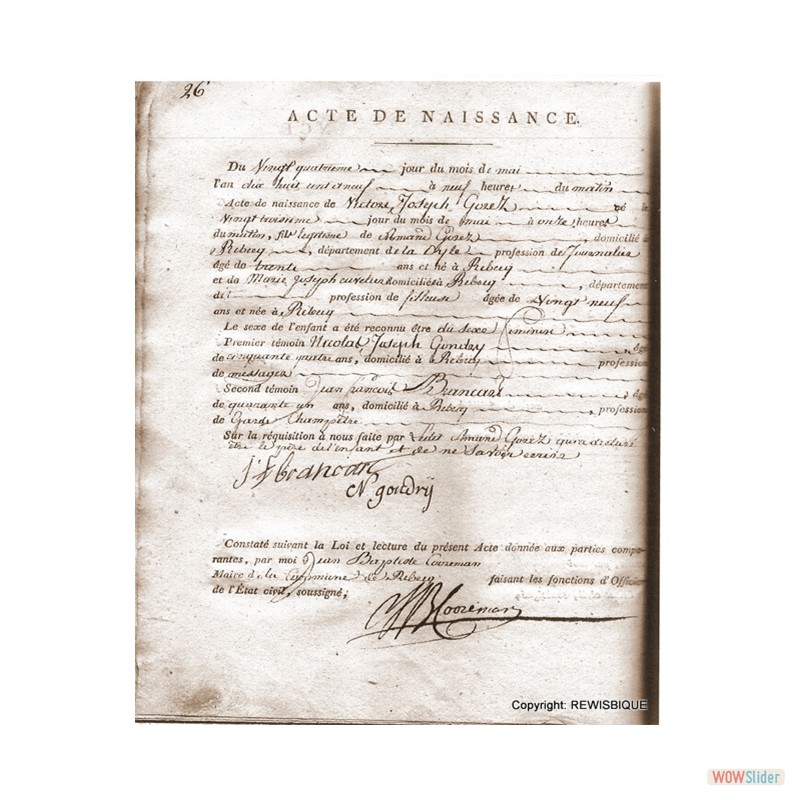 26
ACTE DE NAISSANCE.
Du Vingt quatrieme jour du mois de mai
l'an dix huit cent et neuf à neuf heures du matin
Acte de naissance de Victoire Joseph Gorez né le
Vingt troisieme jour du mois de mai à onze heures
du matin, fils legitime de Armand Gorez, domicilié à
Rebecq, département de la Dyle profession de Journalier
âgé de trente ans et né à Rebecq
et de Marie Joseph domiciliée à Rebecq, département
de profession de fileuse âgée de Vingt neuf
ans et née à Rebecq
Le sexe de l'enfant a été reconnu être du sexe feminin
Premier témoin Nicolas Joseph Gondry, âgé
de cinquante quatre ans, domicilié à Rebecq, profession
de messager
Second témoin Jean francois Brancart, âgé
de quarante un ans, domicilié à Rebecq, profession
de Garde Champêtre
Sur la réquisition à nous faite par Ledit Armand Gorez qui a declaré
être le pere de l'enfant et de ne savoir ecrire
J f brancart
N gondrÿ
Constaté suivant la Loi et lecture du présent Acte donnée aux parties compa-
rantes, par moi Jean Baptiste Cooreman
Maire de la Commune de Rebecq faisant les fonctions d'Officier
de l'État civil, soussigné;
JB Cooreman
Copyright: REWISBIQUE
WOWSlider